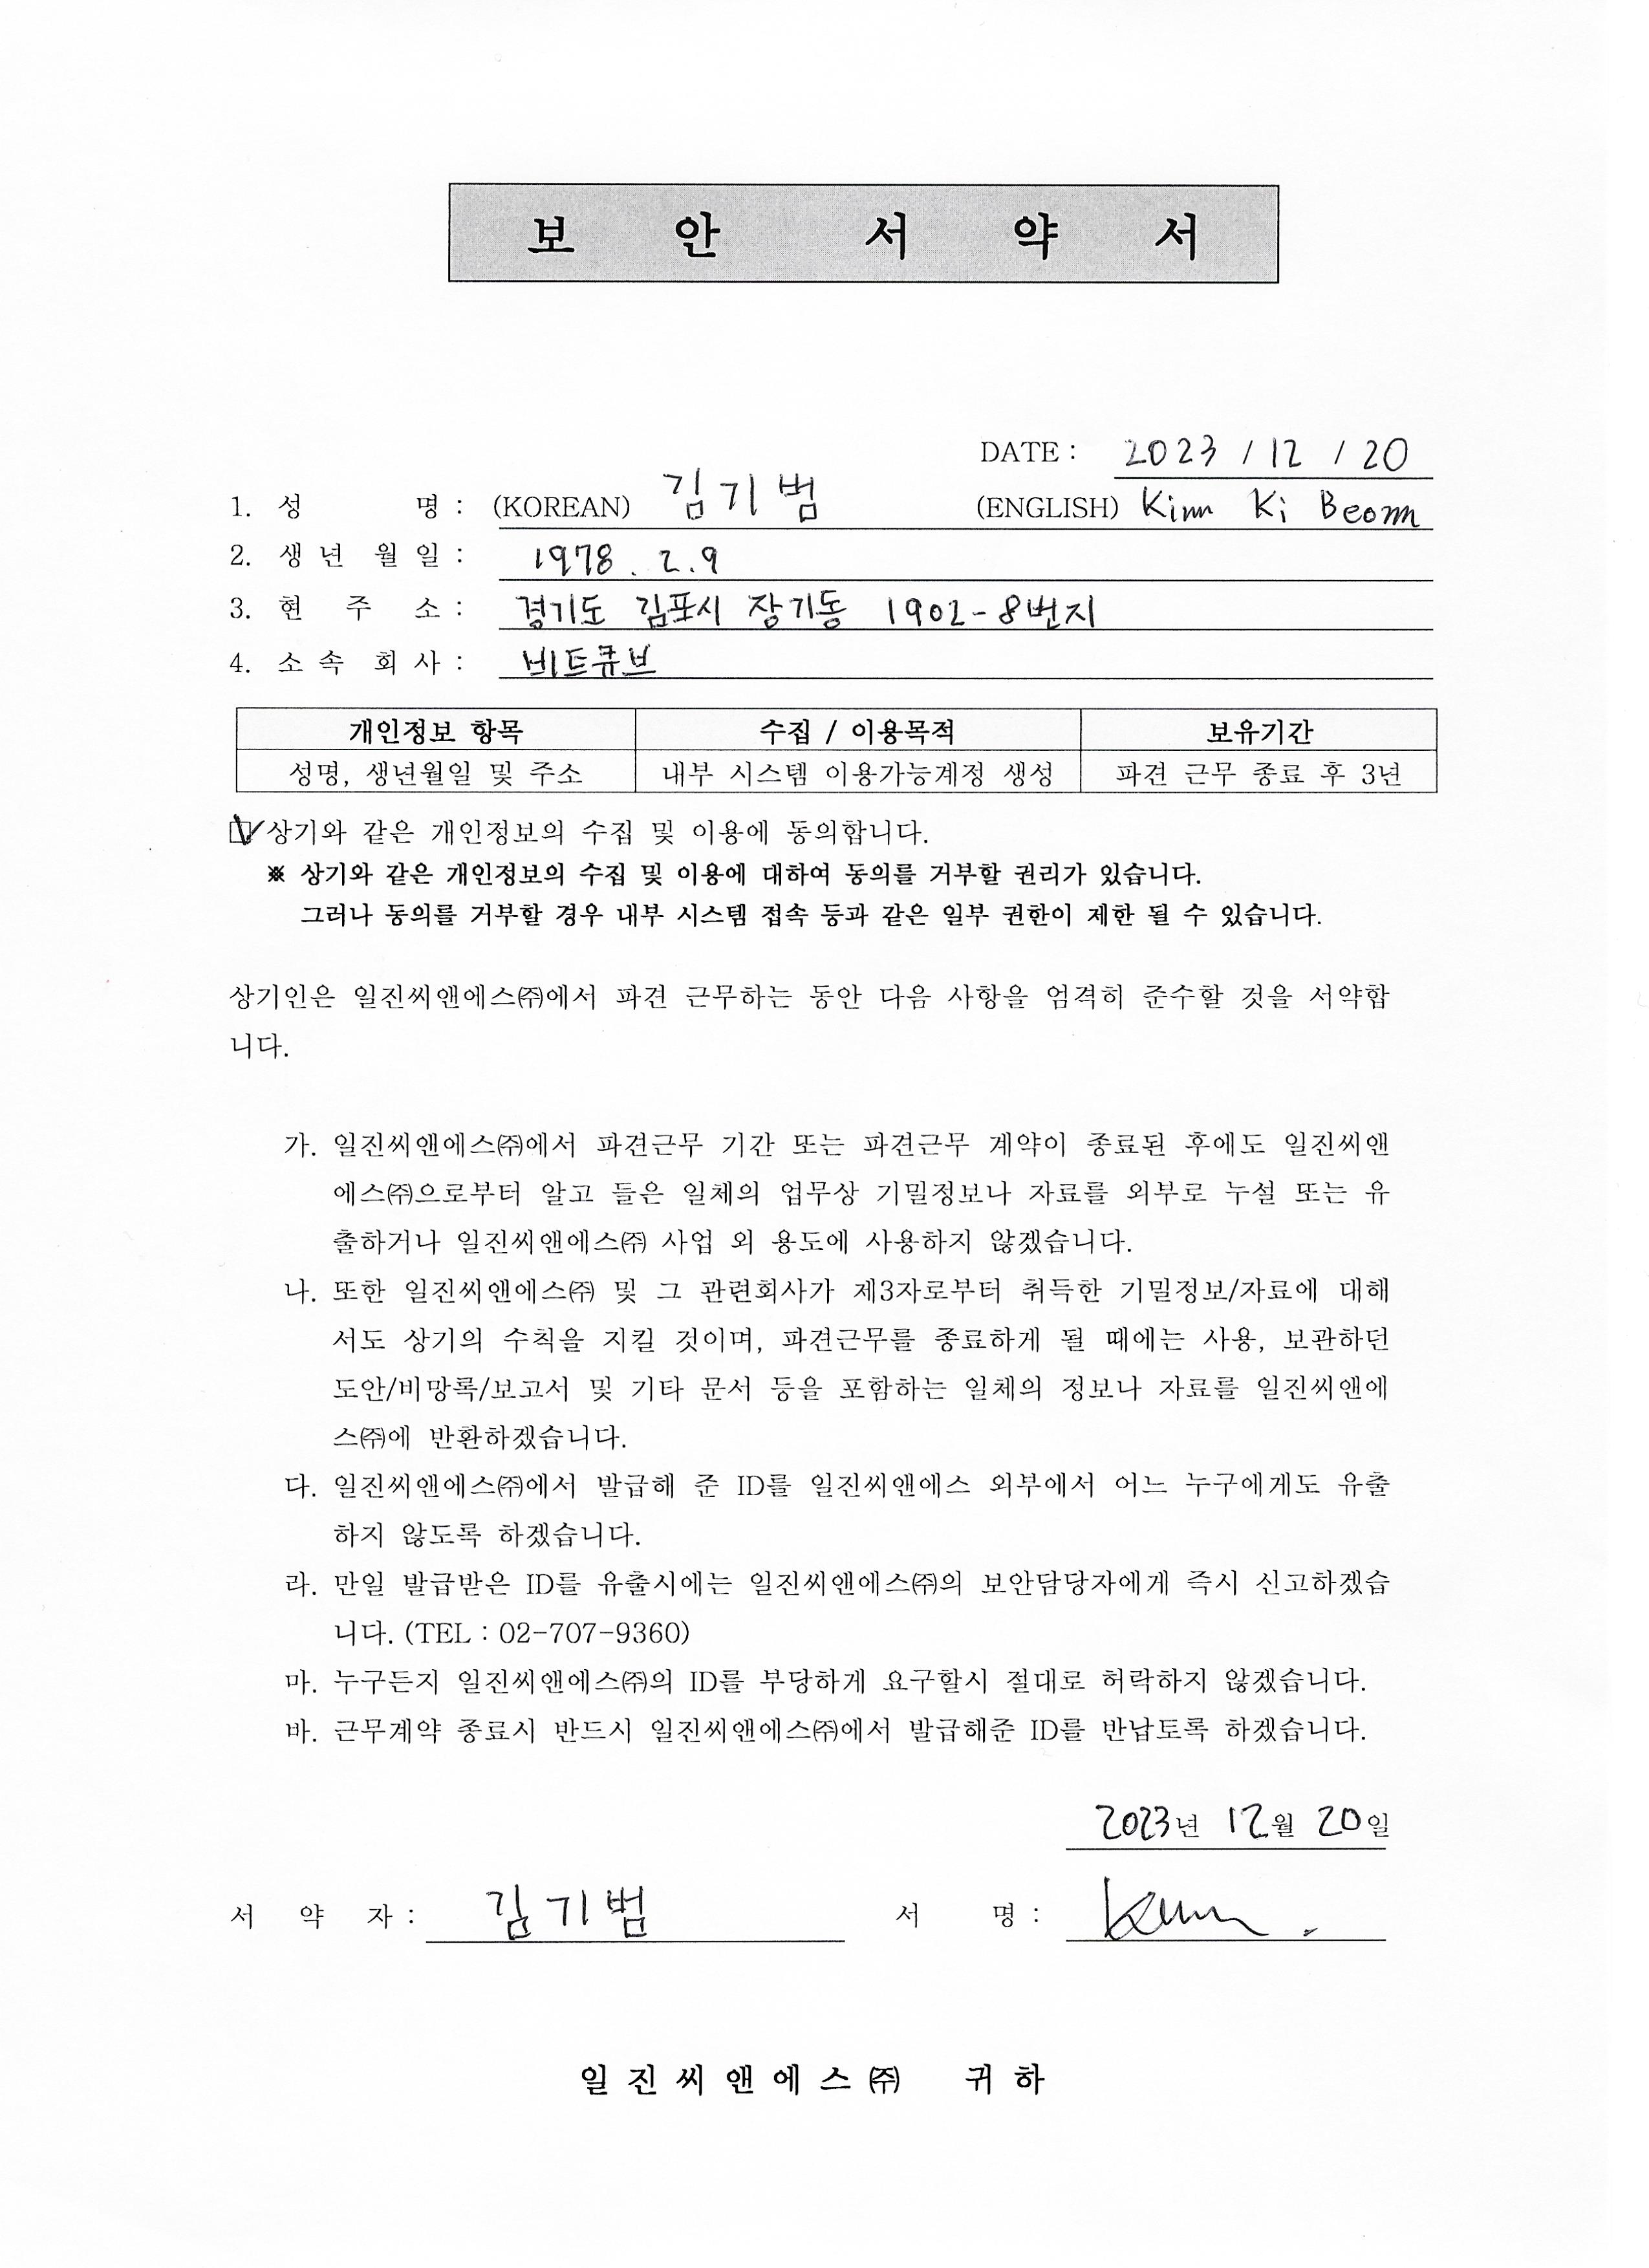 보 안 서 약 서
DATE : 2023 / 12 / 20
1. 성 명 : (KOREAN) 김기범 (ENGLISH) Kim Ki Beom
2. 생 년 월 일 : 1978. 2. 9
3. 현 주 소 : 경기도 김포시 장기동 1902-8번지
4. 소 속 회 사 : 비트큐브
개인정보 항목 수집 / 이용목적 보유기간
성명, 생년월일 및 주소 내부 시스템 이용가능계정 생성 파견 근무 종료 후 3년
☑ 상기와 같은 개인정보의 수집 및 이용에 동의합니다.
※ 상기와 같은 개인정보의 수집 및 이용에 대하여 동의를 거부할 권리가 있습니다.
그러나 동의를 거부할 경우 내부 시스템 접속 등과 같은 일부 권한이 제한 될 수 있습니다.
상기인은 일진씨앤에스㈜에서 파견 근무하는 동안 다음 사항을 엄격히 준수할 것을 서약합
니다.
가. 일진씨앤에스㈜에서 파견근무 기간 또는 파견근무 계약이 종료된 후에도 일진씨앤
에스㈜으로부터 알고 들은 일체의 업무상 기밀정보나 자료를 외부로 누설 또는 유
출하거나 일진씨앤에스㈜ 사업 외 용도에 사용하지 않겠습니다.
나. 또한 일진씨앤에스㈜ 및 그 관련회사가 제3자로부터 취득한 기밀정보/자료에 대해
서도 상기의 수칙을 지킬 것이며, 파견근무를 종료하게 될 때에는 사용, 보관하던
도안/비망록/보고서 및 기타 문서 등을 포함하는 일체의 정보나 자료를 일진씨앤에
스㈜에 반환하겠습니다.
다. 일진씨앤에스㈜에서 발급해 준 ID를 일진씨앤에스 외부에서 어느 누구에게도 유출
하지 않도록 하겠습니다.
라. 만일 발급받은 ID를 유출시에는 일진씨앤에스㈜의 보안담당자에게 즉시 신고하겠습
니다. (TEL : 02-707-9360)
마. 누구든지 일진씨앤에스㈜의 ID를 부당하게 요구할시 절대로 허락하지 않겠습니다.
바. 근무계약 종료시 반드시 일진씨앤에스㈜에서 발급해준 ID를 반납토록 하겠습니다.
2023년 12월 20일
서 약 자 : 김기범 서 명 :
일 진 씨 앤 에 스 ㈜ 귀 하